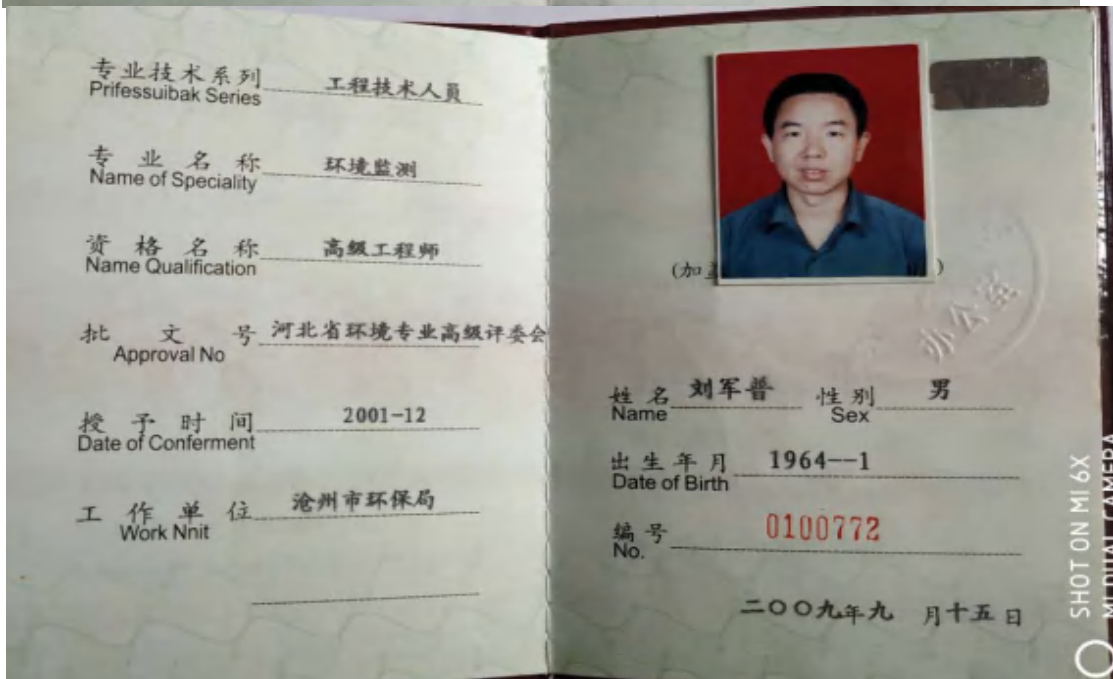 专业技术系列 工程技术人员
Prifessuibak Series
专业名称 环境监测
Name of Speciality
资格名称 高级工程师
Name Qualification
批文号 河北省环境专业高级评委会
Approval No
授予时间 2001-12
Date of Conferment
工作单位 沧州市环保局
Work Nnit
(加
)
办公室
姓名 刘军普 性别 男
Name Sex
出生年月 1964--1
Date of Birth
编号 0100772
No.
二〇〇九年九 月十五日
SHOT ON MI 6X
MI DUAL CAMERA